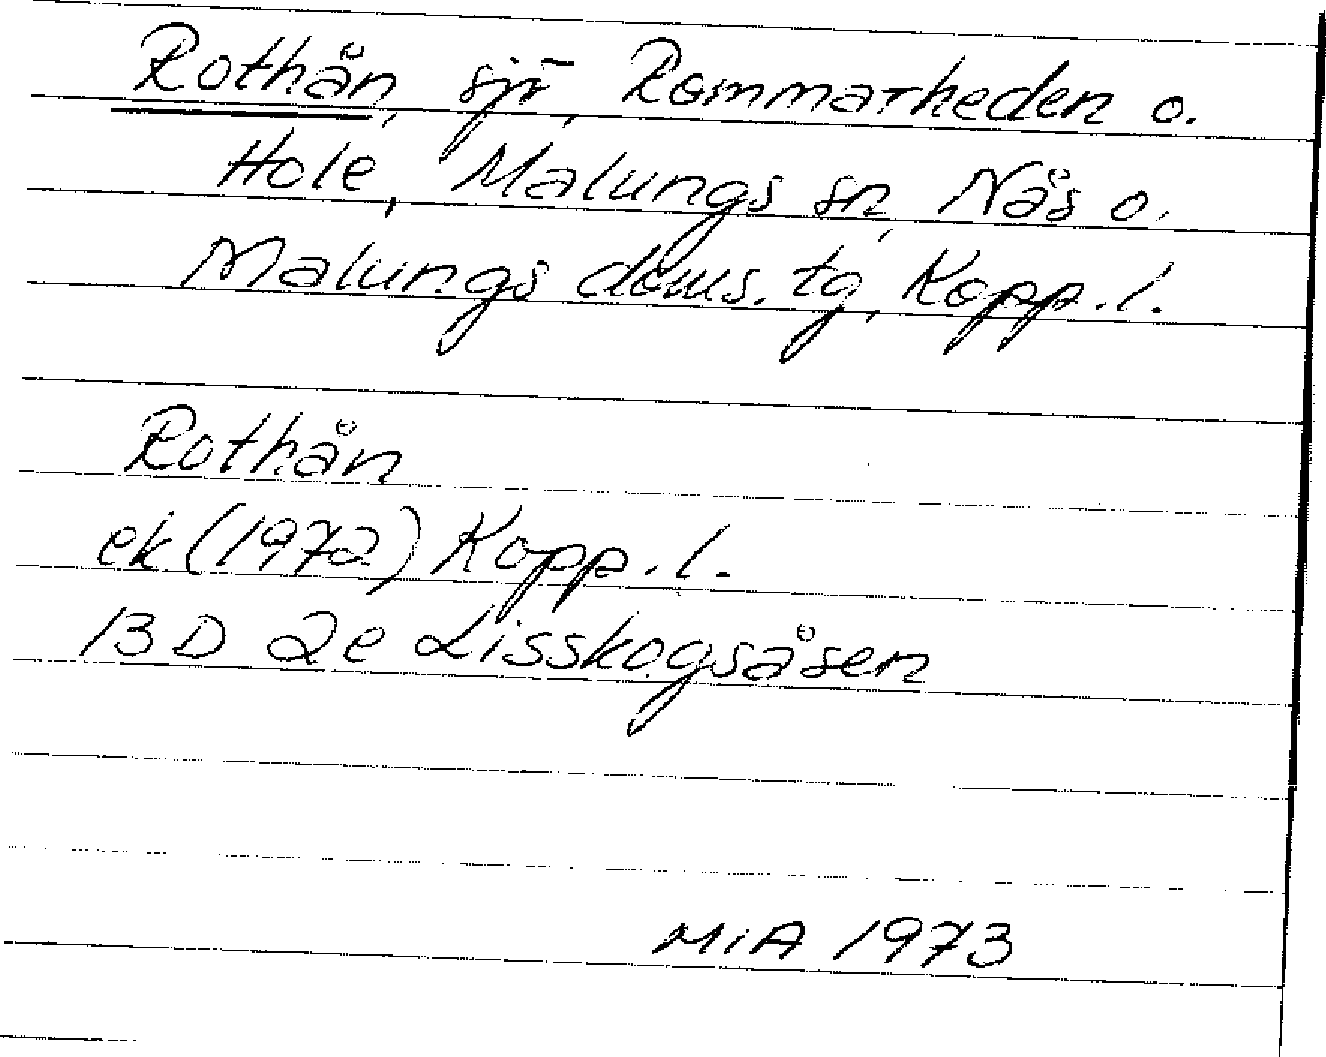 Rothån, sjö, Rommarheden o.
Hole, Malungs sn, Nås o.
Malungs doms. tg, Kopp. l.
Rothån
ek (1972) Kopp. l.
13 D 2e Lisskogsåsen
MiA 1973